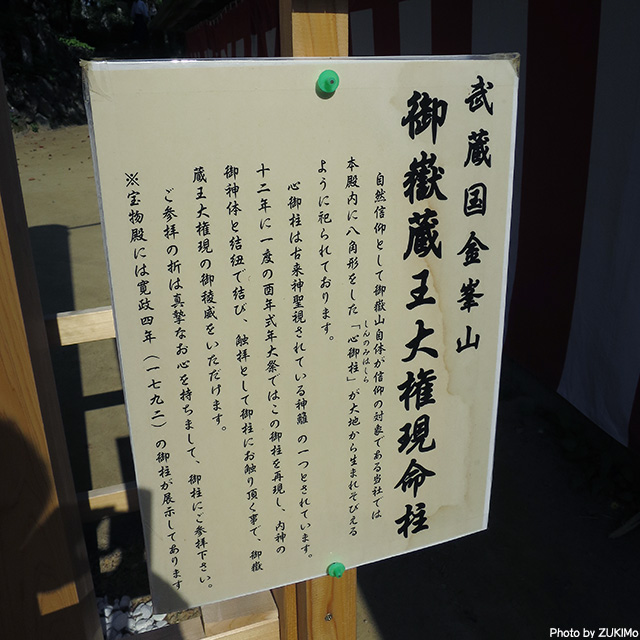 武蔵国金峯山
御嶽蔵王大権現命柱
自然信仰として御嶽山自体が信仰の対象である当社では
本殿内に八角形をした「心御柱」が大地から生まれそびえる
しんのみはしら
ように祀られております。
心御柱は古来神聖視されている神籬の一つとされています。
十二年に一度の酉年式年大祭ではこの御柱を再現し、内神の
御神体と結紐で結び、触拝として御柱にお触り頂く事で、御嶽
蔵王大権現の御稜威をいただけます。
ご参拝の折は真摯なお心を持ちまして、御柱にご参拝下さい。
※宝物殿には寛政四年(一七九二)の御柱が展示してあります
Photo by ZUKIMo